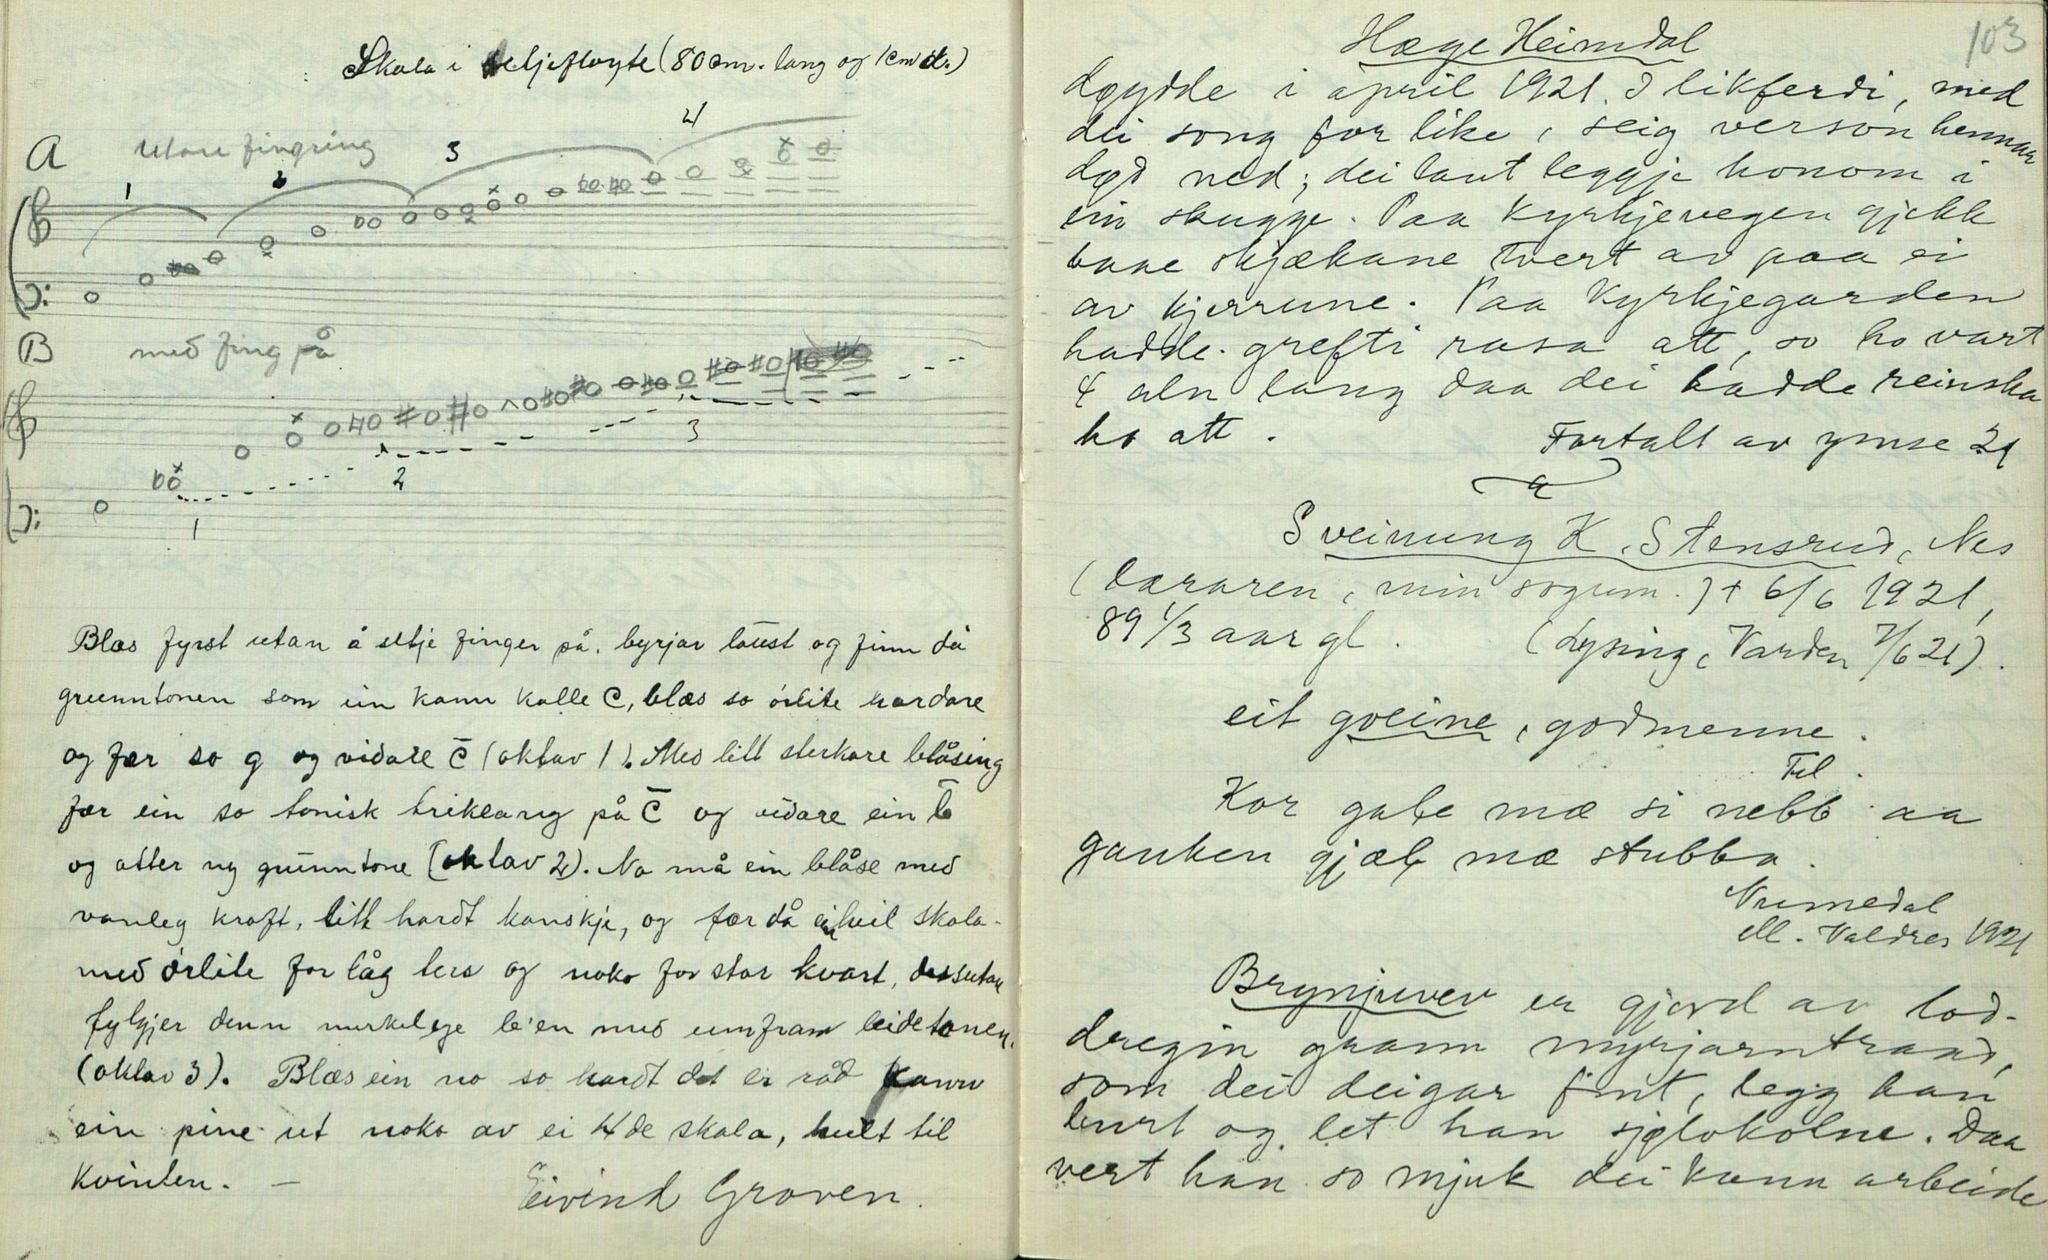 Skala i seljefløyte (80 cm. lang og 1 cm d.)
A utan fingring
1 2 3 4
B med fing på
1 2 3
Blæs fyrst utan å setje finger på. byrjar laust og finn då
grunntonen som ein kann kalle c, blæs so ørlite hardare
og fær so g og vidare c̄ (oktav 1). Med litt sterkare blåsing
fær ein so tonisk triklang på c̄ og vidare ein b
og atter ny grunntone (oktav 2). No må ein blåse med
vanleg kraft, litt hardt kanskje, og fær då ein heil skala
med ørlite for låg ters og noko for stor kvart, dessutan
fylgjer denn merkelege b'en med umfram leidetonen.
(oktav 3). Blæs ein no so hardt det er råd kann
ein pine ut noko av ei 4de skala, heilt til
kvinten. —
Eivind Groven.
103
Hæge Heimdal
døydde i april 1921. I likferdi, med
dei song for like, seig verson hennar
død ned; dei laut leggje honom i
ein skugge. Paa kyrkjevegen gjekk
baae skjækane tvert av paa ei
av kjerrune. Paa kyrkjegarden
hadde grefti rasa att, so ho vart
4 aln lang daa dei hadde reinska
ho att.
Fortalt av ymse 21
Sveinung K. Stensrud, Nes
(læraren, min sogum.) + 6/6 1921,
89 1/3 aar gl.
(Lysing, Varden 7/6 21).
eit goeine, godmenne.
Tel.
Kor gale mæ si nebb aa
gauken gjæl mæ stubba.
Numedal
ell. Valdres 1921
Brynjuver er gjord av lod-
dregin grann myrjarntraad,
som dei deigar fint, legg han
burt og let han sjølvkolne. Daa
vert han so mjuk dei kann arbeide